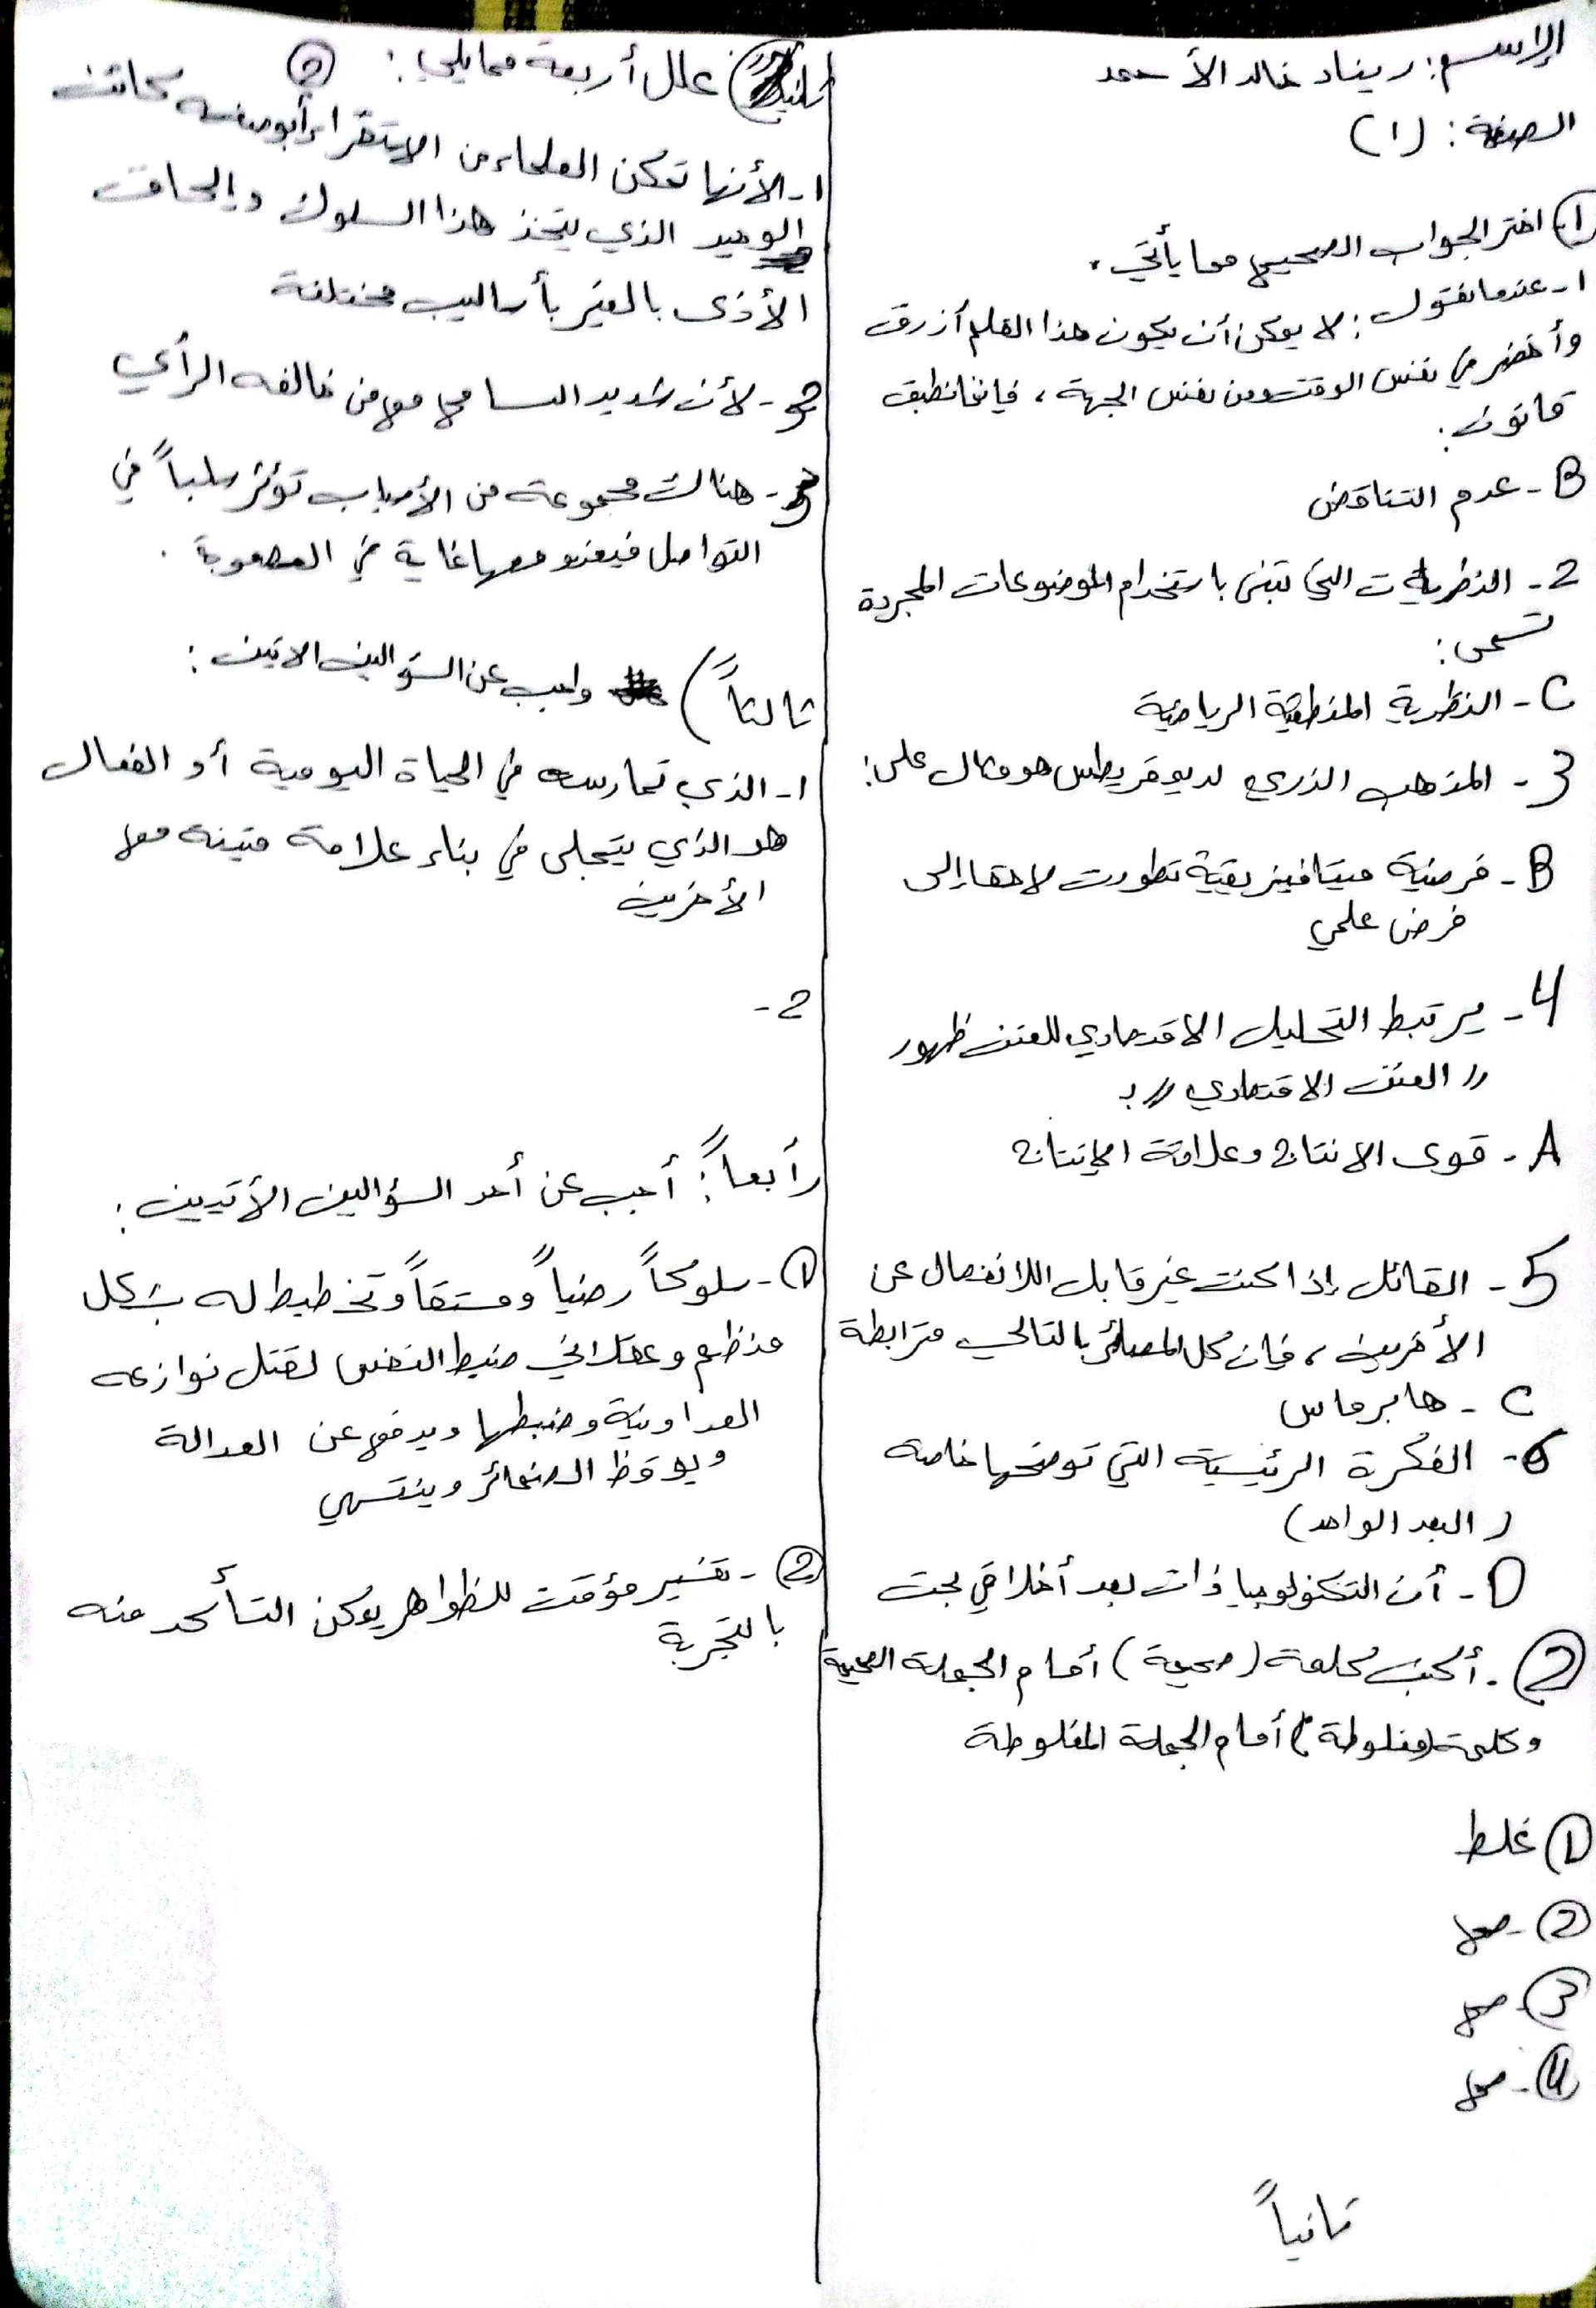 الإسم: ريناد خالد الأسعد
الصفحة: (١)
① اختر الجواب الصحيح مما يأتي.
١- عندما نقول: لا يمكن أن يكون هذا القلم أزرق
وأخضر في نفس الوقت ومن نفس الجهة، فإننا نطبق
قانون:
B - عدم التناقض
2 - النظريات التي تبنى باستخدام الموضوعات المجردة
تسمى:
C - النظرية المنطقية الرياضية
3 - المذهب الذري لديوقريطس هو مثال على:
B - فرضية ميتافيزيقية تطورت لاحقا إلى
فرض علمي
4 - يرتبط التحليل الاقتصادي للعنف ظهور
" العنف الاقتصادي " بـ
A - قوى الانتاج وعلاقة الإنتاج
5 - القائل إذا كنت غير قابل اللانفصال عن
الأخرين، فإن كل المصائر بالتالي مترابطة
C - هابرماس
6 - الفكرة الرئيسية التي توضحها خاصة
(البعد الواحد)
D - أن التكنولوجيا ذات بعد أخلاقي بحت
② - أكتب كلمة (صحيحة) أمام الجملة الصحيحة
وكلمة (مغلوطة) أمام الجملة المغلوطة
① غلط
② - صح
③ - صح
④ - صح
ثانياً
علل أربعة مما يلي: ②
١- لأنها تمكن العلماء من الاستقراء أبو صفه كائن
الوحيد الذي يتخذ هذا السلوك وإلحاق
الأذى بالغير بأساليب مختلفة
2 - لأن شديد التسامح مع من خالفه الرأي
3 - هناك مجموعة من الأسباب تؤثر سلباً في
التواصل فيغدو معها غاية في الصعوبة .
ثالثاً) واجب عن السؤالين الاتين:
١- الذي تمارسه في الحياة اليومية أو الفعال
هو الذي يتجلى في بناء علاقة متينه مع
الأخرين
2 -
رابعاً: أجب عن أحد السؤالين الأتيين:
① - سلوكاً رضياً ومستقاً وتخطيط له بشكل
منظم وعقلاني ضبط النفس لقتل نوازعه
العداونية وضبطها ويدفع عن العدالة
ويوقظ الضمائر وينتهي
② - تفسير مؤقت للظواهر يمكن التأكد منه
بالتجربة